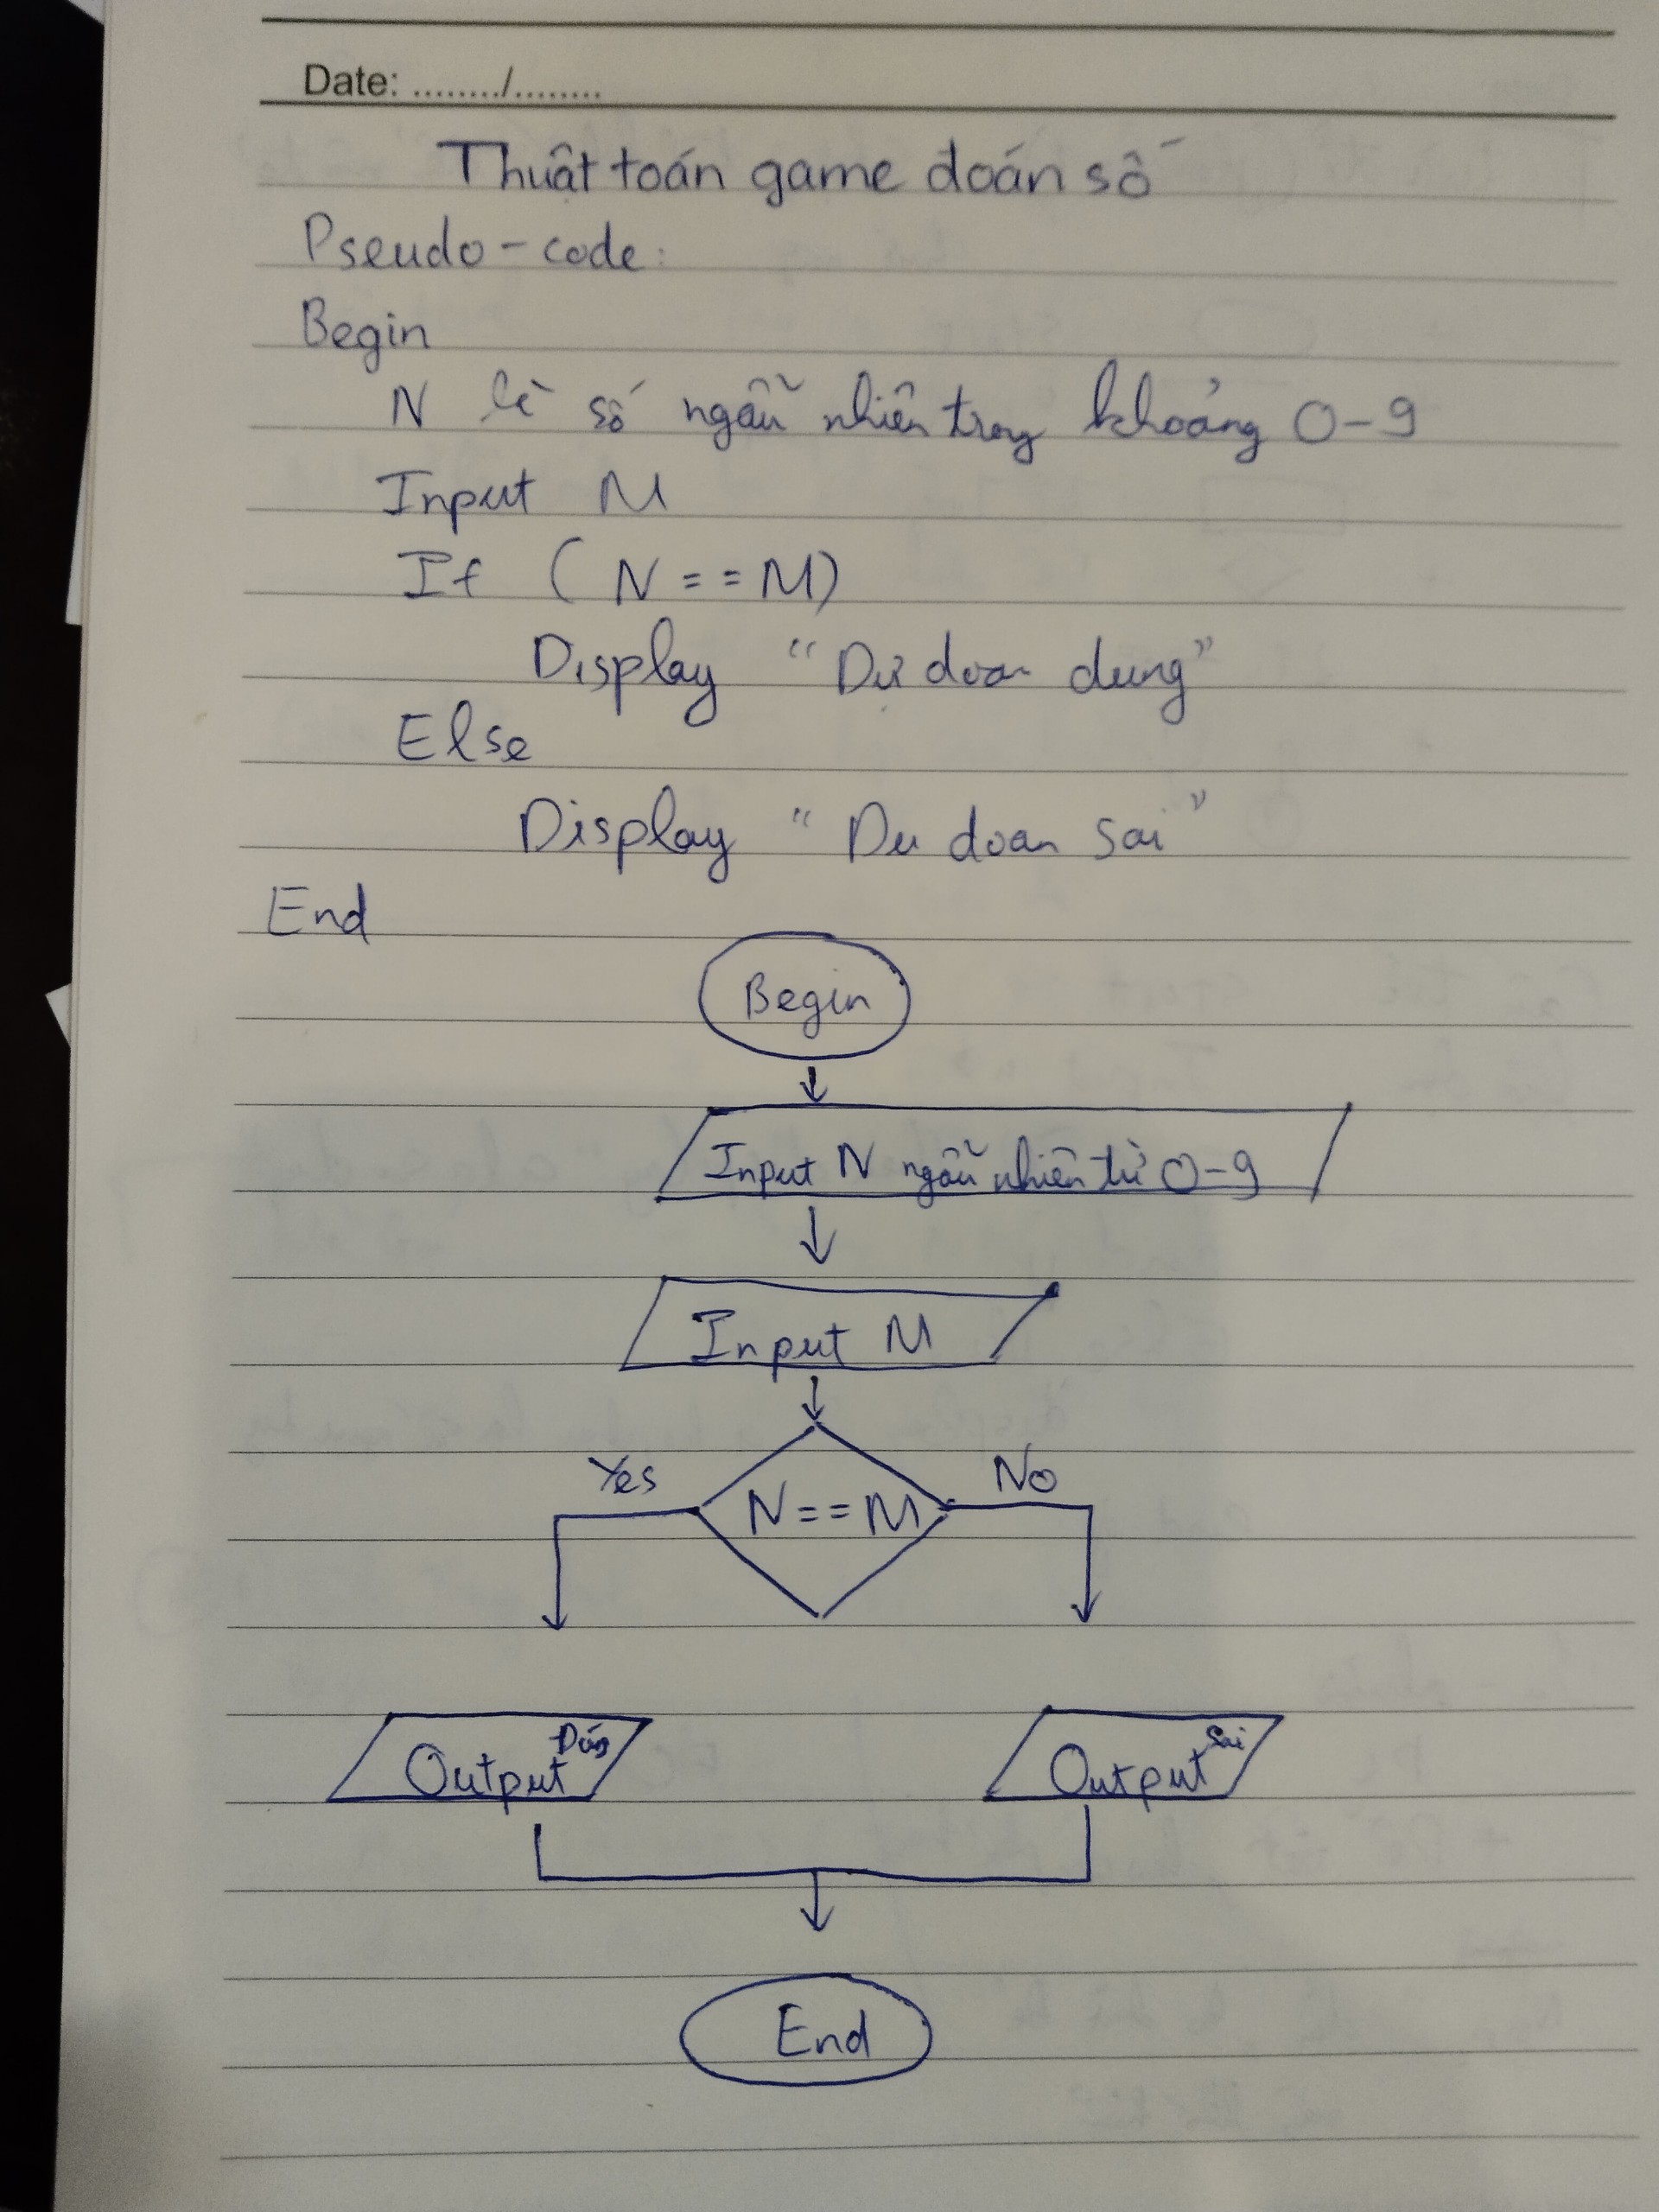 Date: ......../........
Thuật toán game đoán số
Pseudo-code:
Begin
N là số ngẫu nhiên trong khoảng 0-9
Input M
If (N == M)
Display "Dự doan dung"
Else
Display "Du doan sai"
End
Begin
Input N ngẫu nhiên từ 0-9
Input M
Yes
No
N==M
Output Đúng
Output Sai
End